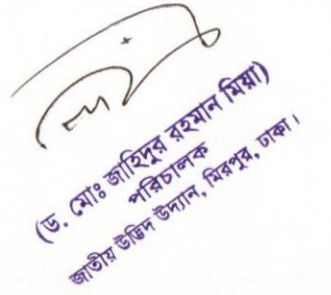 (ড. মোঃ জাহিদুর রহমান মিয়া)
পরিচালক
জাতীয় উদ্ভিদ উদ্যান, মিরপুর, ঢাকা।